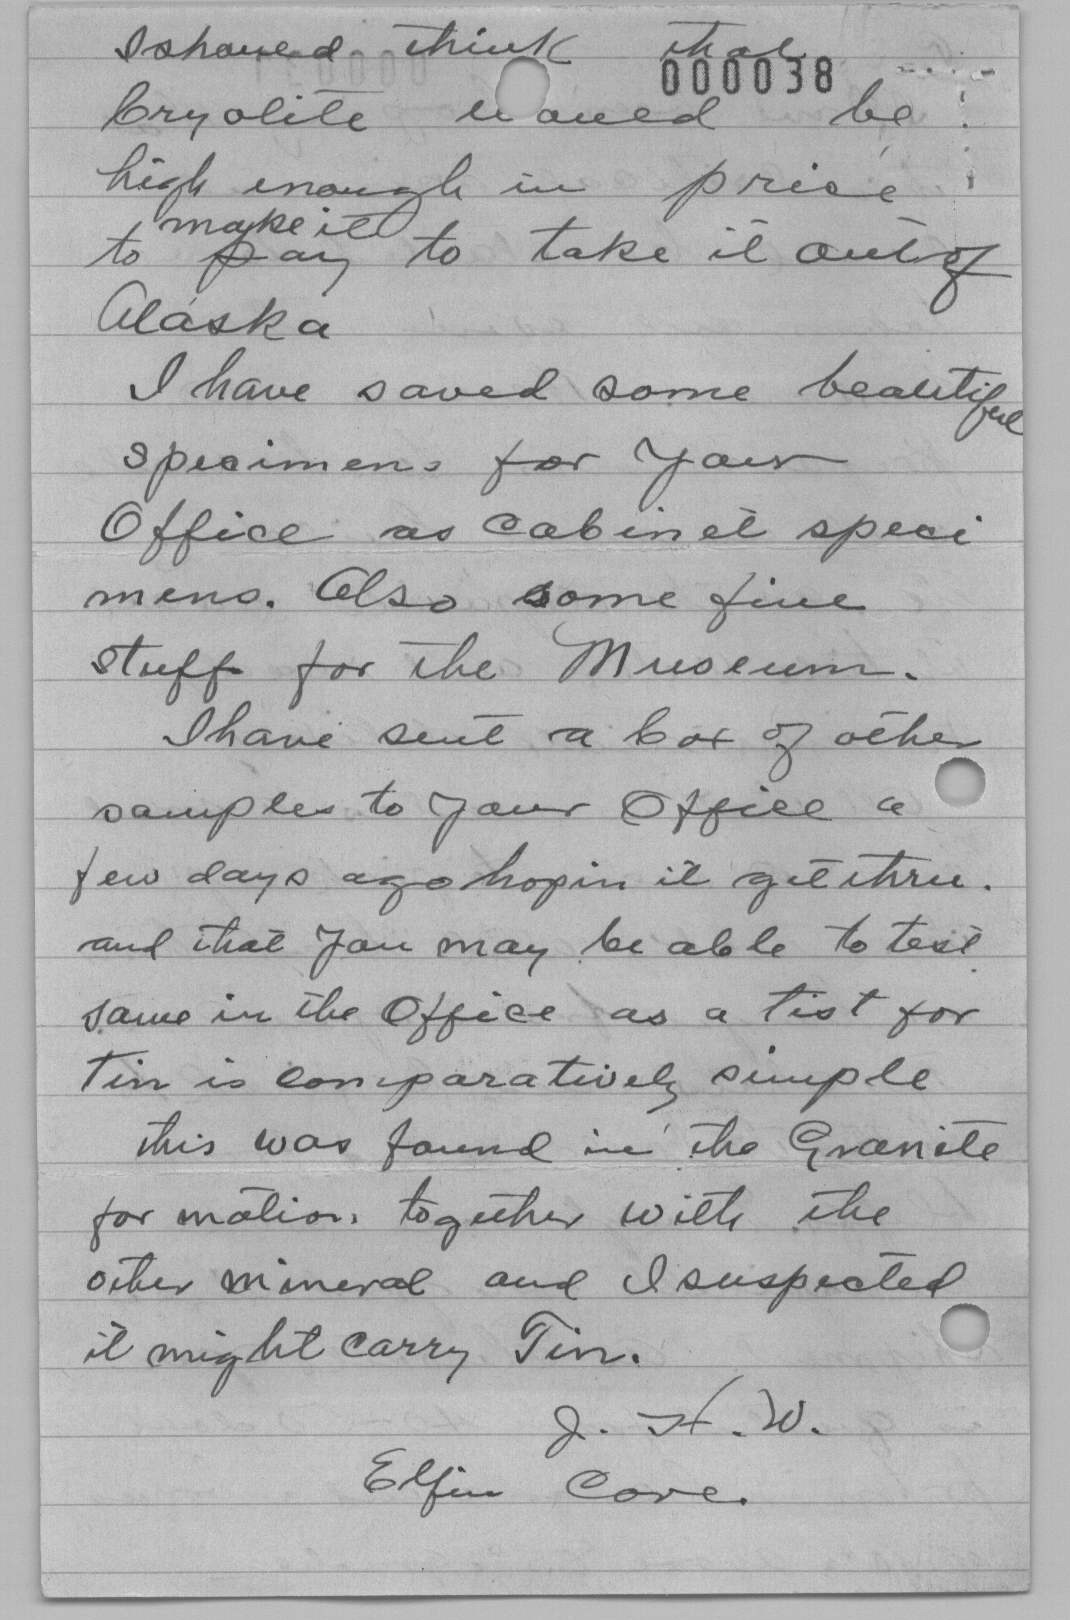 I should think that
000038
Cryolite would be
high enough in price
make it
to pay to take it out of
Alaska
I have saved some beautiful
specimens for your
Office as cabinet speci
mens. Also some fine
stuff for the Museum.
I have sent a box of other
samples to your Office a
few days ago hopin it get thru.
and that you may be able to test
same in the Office as a test for
Tin is comparatively simple
this was found in the Granite
formation together with the
other mineral and I suspected
it might carry Tin.
J. H. W.
Elfin Cove.